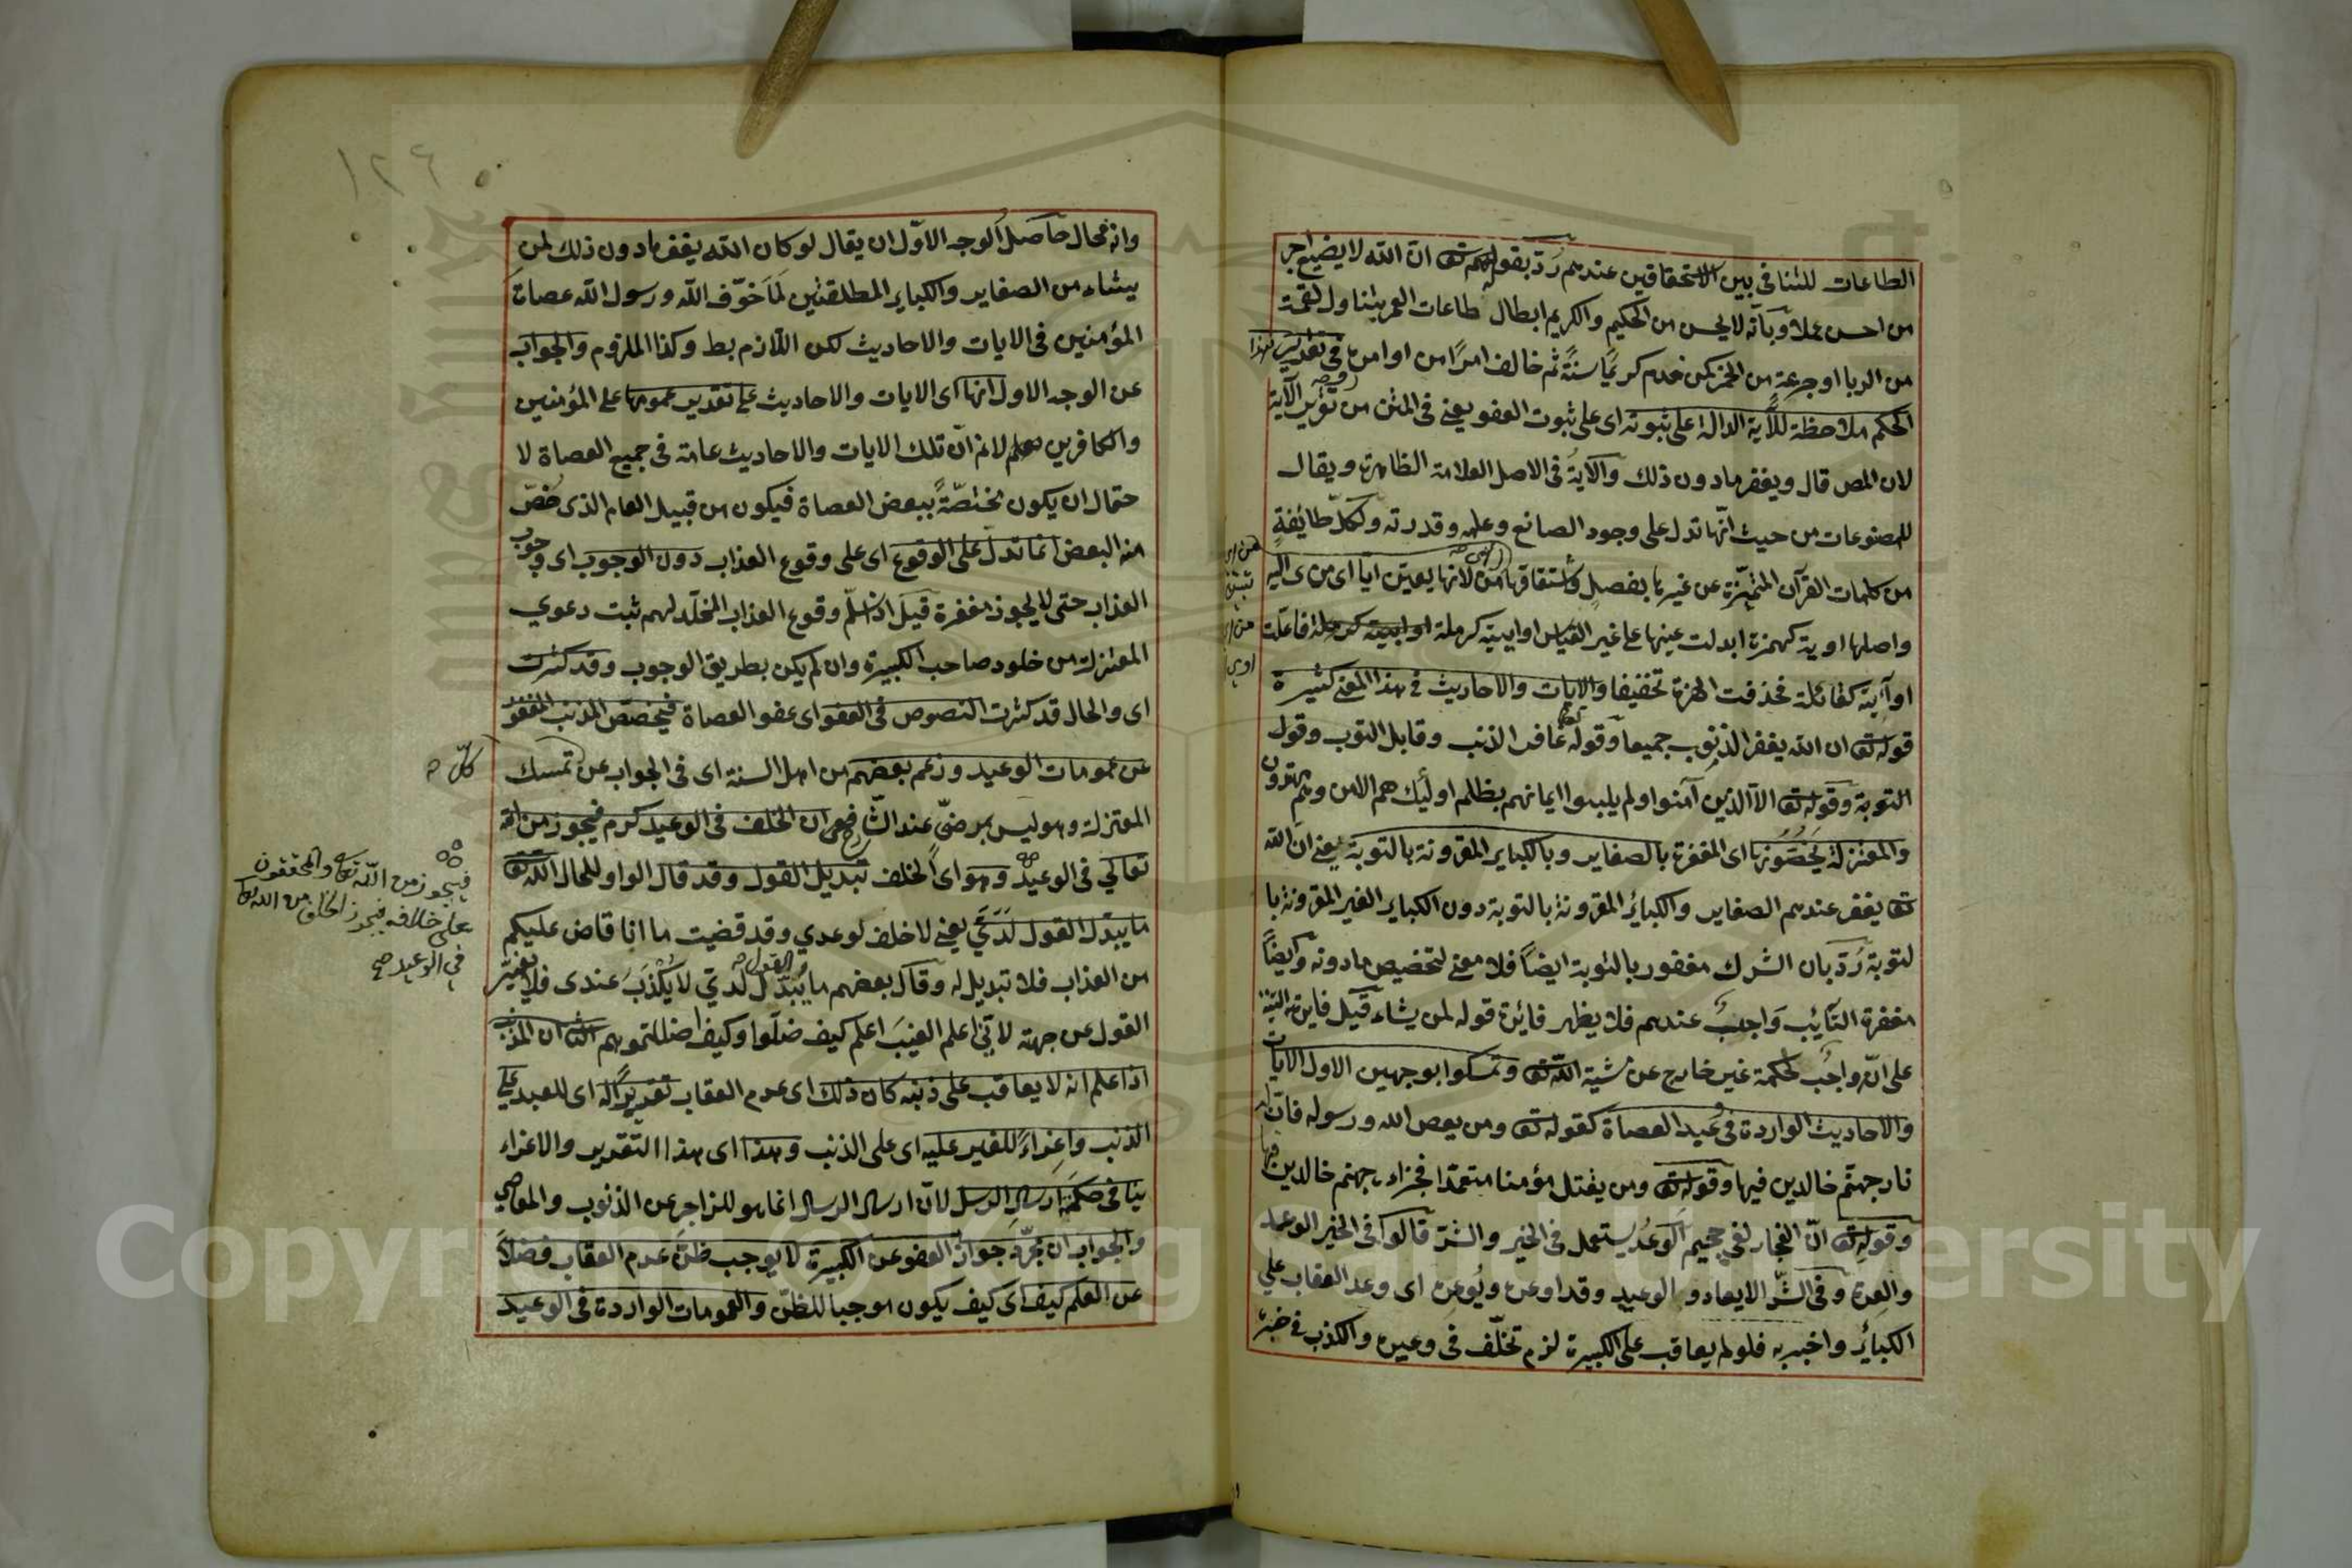 الطاعات للتنافى بين الاستحقاقين عندهم رد بقوله تع ان الله لا يضيع اجر
من احسن عملا وبانه لا يحسن من الحكيم والكريم ابطال طاعات العمر بتناول لقمة
من الربا او جرعة من الخمر كمن خدم كريما سنة ثم خالف امرا من اوامره فى تقدير هذا
الحكم ملاحظة للآية الدالة على ثبوته اى على ثبوت العفو يعنى فى المتن من تقرير الآية
لان المص قال ويغفر ما دون ذلك والآية فى الاصل العلامة الظاهرة ويقال
للمصنوعات من حيث انها تدل على وجود الصانع وعلمه وقدرته ولكل طائفة
من كلمات القرآن المتميزة عن غيرها بفصل واشتقاقها من لانها يعين ايا اى من اى اليه
واصلها اوية كهمزة ابدلت عينها على غير القياس او ايية كرملة فاعلت
او آئية كقائلة فحذفت الهمزة تخفيفا والايات والاحاديث فى هذا المعنى كثيرة
قوله تع ان الله يغفر الذنوب جميعا وقوله تعالى غافر الذنب وقابل التوب وقول
التوبة وقوله تع الا الذين آمنوا ولم يلبسوا ايمانهم بظلم اولئك لهم الامن وهم مهتدون
والمعتزلة يخصونها اى المغفرة بالصغاير وبالكباير المقرونة بالتوبة يعنى ان الله
تع يغفر عندهم الصغاير والكبائر المقرونة بالتوبة دون الكباير الغير المقرونة با
لتوبة رد بان الشرك مغفور بالتوبة ايضا فلا معنى لتخصيص ما دونه وايضا
مغفرة التايب واجب عندهم فلا يظهر فائدة قوله لمن يشاء قيل فايدته التنبيه
على ان واجب لحكمة غير خارج عن مشية الله تع وتمسكوا بوجهين الاول الايات
والاحاديث الواردة فى وعيد العصاة كقوله تع ومن يعص الله ورسوله فان له
نار جهنم خالدين فيها وقوله تع ومن يقتل مؤمنا متعمدا فجزاءه جهنم خالدين فيها
وقوله تع ان الفجار لفى جحيم الوعد يستعمل فى الخير والشر قالوا فى الخير الوعد
والعدة وفى الشر الايعاد والوعيد وقد اوعده ويوعده اى وعد العقاب على
الكبائر واخبر به فلو لم يعاقب على الكبيرة لزم تخلف فى وعيده والكذب فى خبره
١٢٦
وانه محال حاصل الوجه الاول ان يقال لو كان الله يغفر ما دون ذلك لمن
يشاء من الصغاير والكباير المطلقتين لما خوف الله ورسول الله عصاة
المؤمنين فى الايات والاحاديث لكن اللازم بط وكذا الملزوم والجواب
عن الوجه الاول انها اى الايات والاحاديث على تقدير عمومها على المؤمنين
والكافرين لانم ان تلك الايات والاحاديث عامة فى جميع العصاة لا
حتمال ان يكون مختصة ببعض العصاة فيكون من قبيل العام الذى خص
منه البعض انما تدل على الوقوع اى على وقوع العذاب دون الوجوب اى وجوب
العذاب حتى لا يجوز مغفرة قيل اذا سلم وقوع العذاب المخلد لهم ثبت دعوي
المعتزلة من خلود صاحب الكبيرة وان لم يكن بطريق الوجوب وقد كثرت
اى والحال قد كثرت النصوص فى العفو اى عفو العصاة فيخصص المذنب المغفور
عن عمومات الوعيد وزعم بعضهم من اهل السنة اى فى الجواب عن تمسك
المعتزلة وهو ليس بمرضي عند الشارح ان الخلف فى الوعيد كرم فيجوز من الله
تعالي فى الوعيد وهو اى الخلف تبديل القول وقد قال الواو للحال الله تع
ما يبدل القول لدي يعنى لا خلف لوعدي وقد قضيت ما انا قاض عليكم
من العذاب فلا تبديل له وقال بعضهم ما يبدل القول لدي لا يكذب عندى فلا يغير
القول عن جهته لاني اعلم الغيب اعلم كيف ضلوا وكيف اضللتموهم الثانى ان المذنب
اذا علم انه لا يعاقب على ذنبه كان ذلك اى عدم العقاب تقديرا له اى للعبد على
الذنب واغراء للغير عليه اى على الذنب وهذا اى هذا التقدير والاغراء
ينافى حكمة ارسال الرسل لان ارسال الرسال انما هو للزاجر عن الذنوب والمعاصي
والجواب ان مجرد جواز العفو عن الكبيرة لا يوجب ظن عدم العقاب فضلا
عن العلم كيف اى كيف يكون موجبا للظن والعمومات الواردة فى الوعيد
كل صح
فيجوز من الله تعالى والمحققون
على خلافه فيجوز الخلف من الله تعالى
في الوعيد صح
Copyright © King Saud University